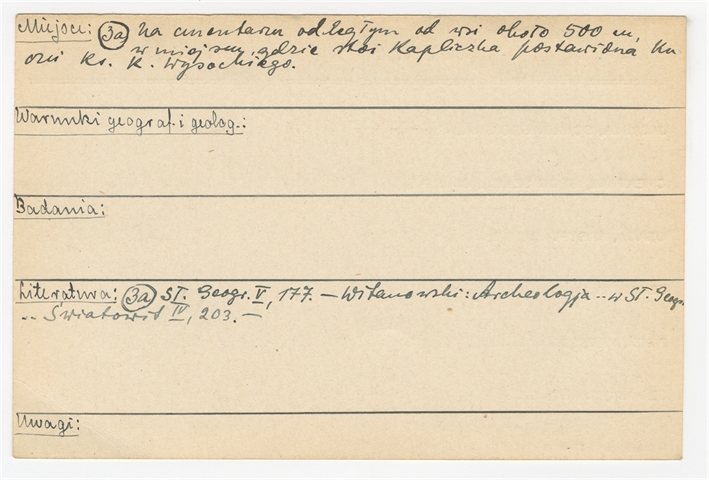 Miejsce: (3a) na cmentarzu odległym od wsi około 500 m,
w miejscu, gdzie stoi Kapliczka postawiona ku
czci ks. K. Wysockiego.
Warunki geograf. i geolog.:
Badania:
Literatura: (3a) Sł. Geogr. V, 177. — Witanowski: Archeologja .. w Sł. Geogr.
.. Światowit IV, 203. —
Uwagi: